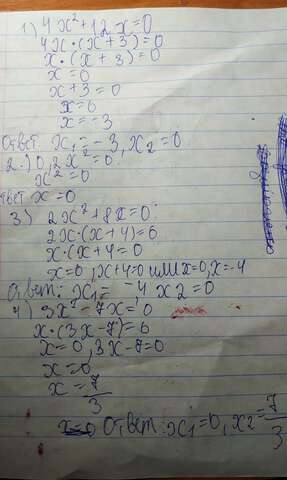 1) 4x²+12x=0
4x·(x+3)=0
x·(x+3)=0
x=0
x+3=0
x=0
x=-3
ответ x₁=-3, x₂=0
2.) 0,8x²=0
x²=0
твет x=0
3) 2x²+8x=0
2x·(x+4)=0
x·(x+4=0
x=0, x+4=0 или x=0, x=-4
Ответ: x₁=-,4 x2=0
4) 3x²-7x=0
x·(3x-7)=0
x=0, 3x-7=0
x=0
x=7/3
Ответ: x₁=0, x₂=7/3